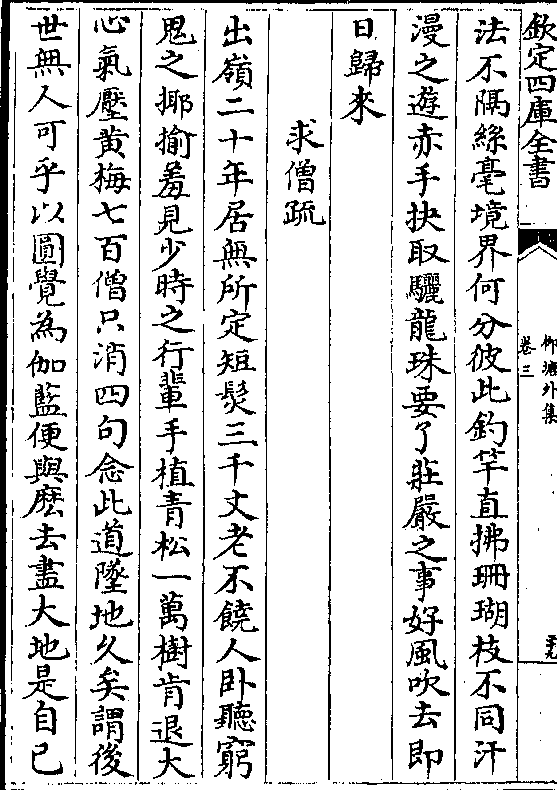 欽定四庫全書
柳塘外集
卷三
法不隔絲毫境界何分彼此釣竿直拂珊瑚枝不同汗
漫之遊赤手抉取驪龍珠要了莊嚴之事好風吹去即
日歸來
求僧疏
出嶺二十年居無所定短髮三千丈老不饒人卧聽窮
鬼之揶揄羞見少時之行輩手植青松一萬樹肯退大
心氣壓黄梅七百僧只消四句念此道墜地久矣謂後
世無人可乎以圓覺為伽藍便與麽去盡大地是自已